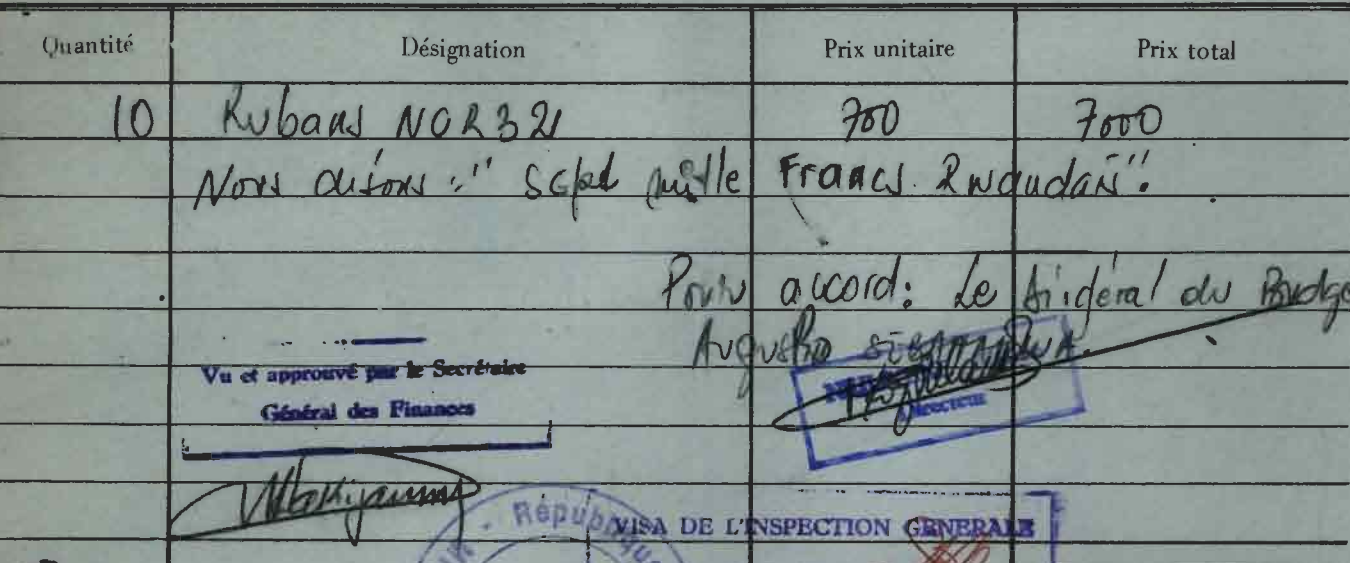 Quantité Désignation Prix unitaire Prix total
10 Rubans NOR 321 700 7000
Nous disons : " Sept mille Francs Rwandais".
Pour accord: Le
Vu et approuvé par le Secrétaire
Général des Finances
Directeur
VISA DE L'INSPECTION GENERALE